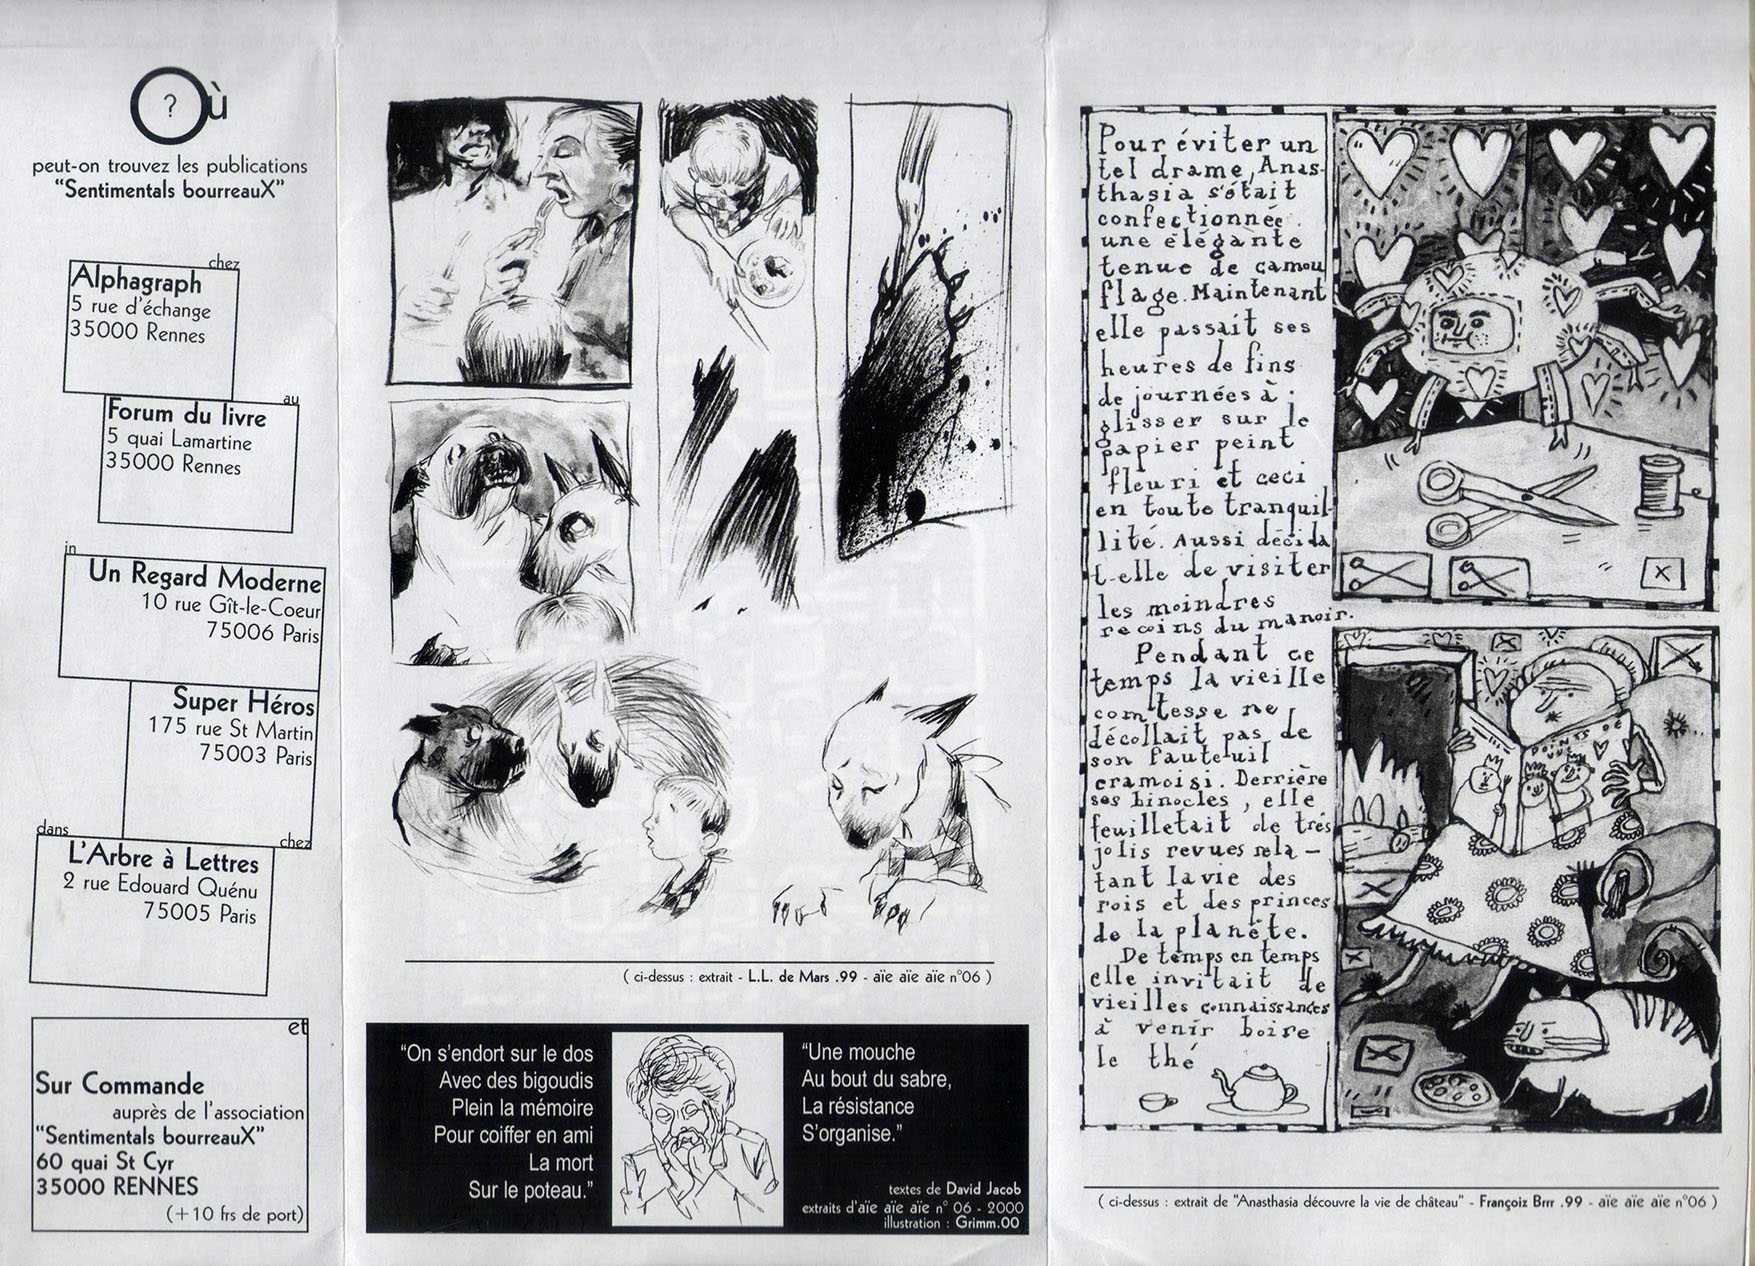 Où
?
peut-on trouvez les publications
“Sentimentals bourreauX”
chez
Alphagraph
5 rue d'échange
35000 Rennes
au
Forum du livre
5 quai Lamartine
35000 Rennes
in
Un Regard Moderne
10 rue Gît-le-Coeur
75006 Paris
Super Héros
175 rue St Martin
75003 Paris
dans
chez
L'Arbre à Lettres
2 rue Edouard Quénu
75005 Paris
et
Sur Commande
auprès de l'association
“Sentimentals bourreauX”
60 quai St Cyr
35000 RENNES
(+10 frs de port)
( ci-dessus : extrait - L.L. de Mars .99 - aïe aïe aïe n°06 )
“On s'endort sur le dos
Avec des bigoudis
Plein la mémoire
Pour coiffer en ami
La mort
Sur le poteau.”
“Une mouche
Au bout du sabre,
La résistance
S'organise.”
textes de David Jacob
extraits d'aïe aïe aïe n° 06 - 2000
illustration : Grimm.00
Pour éviter un
tel drame, Anas-
thasia s'était
confectionnée
une élégante
tenue de camou
flage. Maintenant
elle passait ses
heures de fins
de journées à
glisser sur le
papier peint
fleuri et ceci
en toute tranquil-
lité. Aussi décida
t-elle de visiter
les moindres
recoins du manoir.
Pendant ce
temps la vieille
comtesse ne
décollait pas de
son fauteuil
cramoisi. Derrière
ses binocles, elle
feuilletait de très
jolis revues rela-
tant la vie des
rois et des princes
de la planète.
De temps en temps
elle invitait de
vieilles connaissances
à venir boire
le thé
POINTS DE
VUE
( ci-dessus : extrait de "Anasthasia découvre la vie de château" - Françoiz Brrr .99 - aïe aïe aïe n°06 )